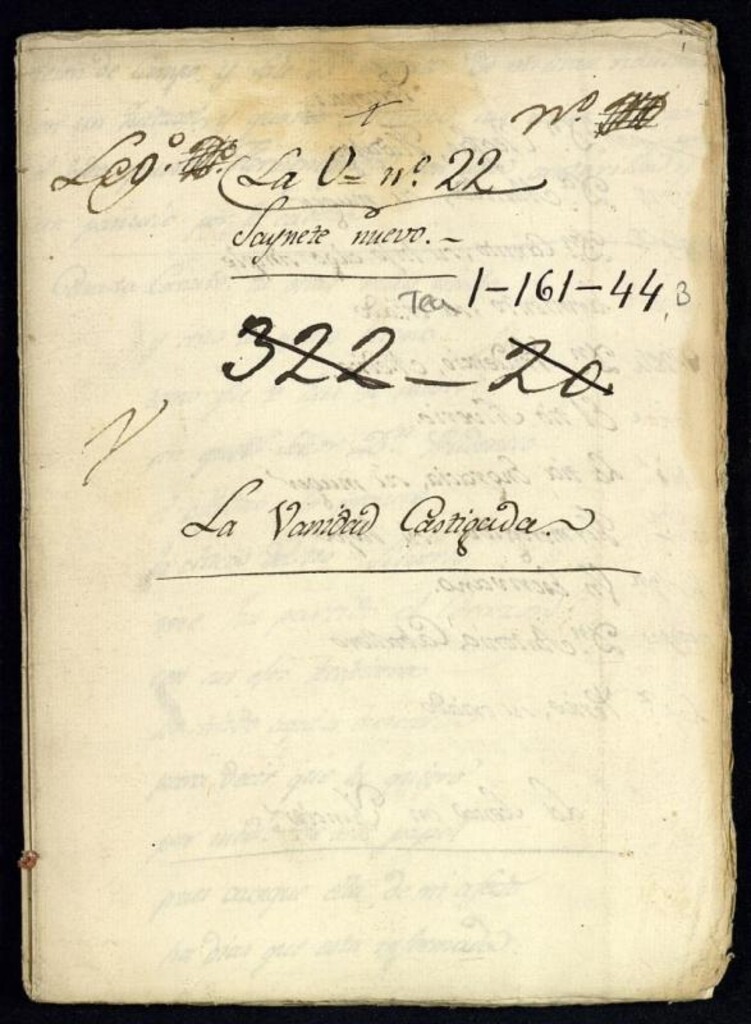 +
Nº
Legº.
La V= nº. 22
Saynete nuevo.-
Tea 1-161-44, B
322-20
V
La Vanidad Castigada.